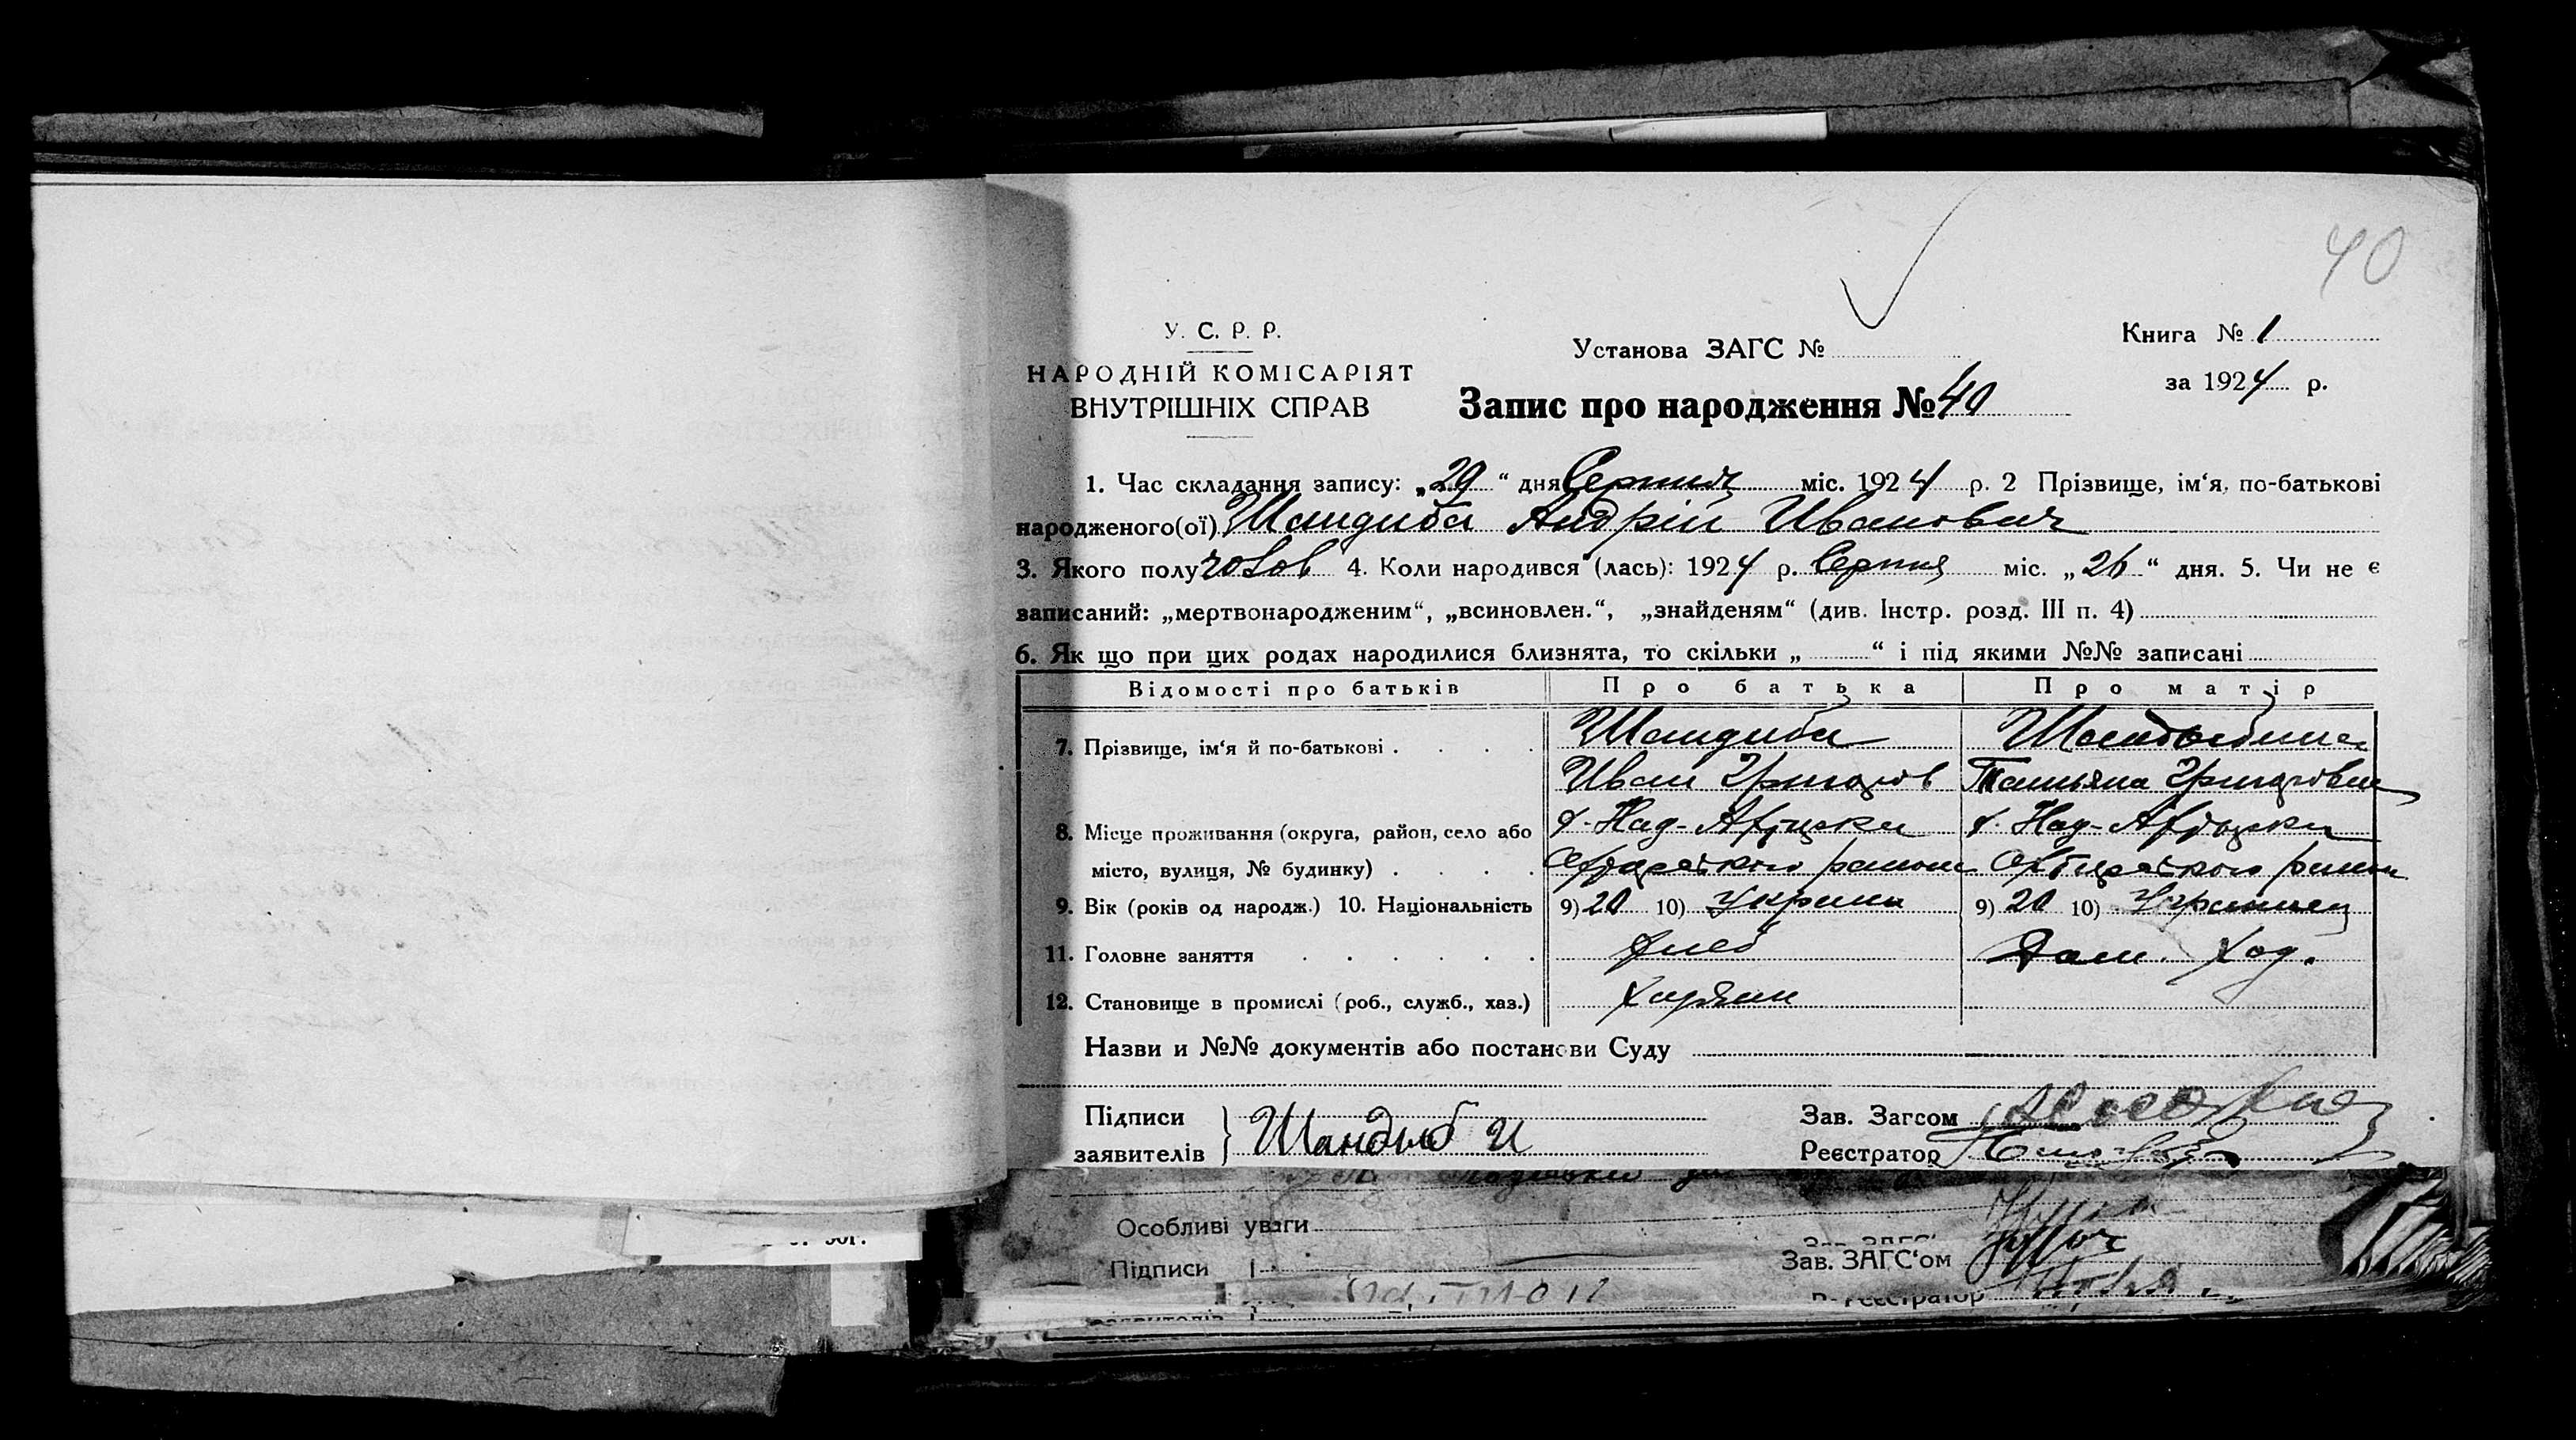 40
У. С. Р. Р.
НАРОДНІЙ КОМІСАРІЯТ
ВНУТРІШНІХ СПРАВ
Установа ЗАГС №
Книга № 1
за 1924 р.
Запис про народження № 40
1. Час складання запису: „29“ дня Серпня міс. 1924 р. 2 Прізвище, ім‘я, по-батькові
народженого(ої) Шандиба Андрій Иванович
3. Якого полу чолов 4. Коли народився (лась): 1924 р. Серпня міс. „26“ дня. 5. Чи не є
записаний: „мертвонародженим“, „всиновлен.“, „знайденям“ (див. Інстр. розд. III п. 4)
6. Як що при цих родах народилися близнята, то скільки „ “ і під якими №№ записані
Відомості про батьків Про батька Про матір
7. Прізвище, ім‘я й по-батькові . . . . Шандиба
Иван Григоров Татьяна Григоровна
8. Місце проживання (округа, район, село або х. Над-
місто, вулиця, № будинку) . . . . району
9. Вік (років од народж.) 10. Національність 9) 20 10) Украин 9) 20 10)
11. Головне заняття . . . . . . хлеб Дом. Хоз.
12. Становище в промислі (роб., служб., хаз.) Хозяин
Назви и №№ документів або постанови Суду
Підписи
заявителів Шандыб И
Зав. Загсом
Реєстратор
Особливі уваги
Зав. ЗАГС‘ом
Підписи
Реєстратор